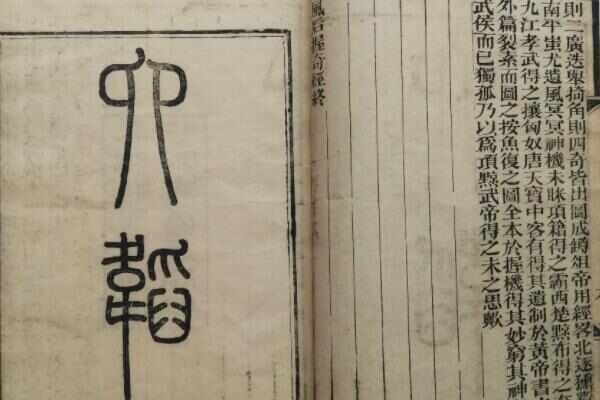 則二廣迭舉掎角則四奇皆出圖成鐏俎帝用經畧北逐獯
南平蚩尤遺風冥冥神機未昧項籍得之霸西楚黥布得之
九江孝武得之攘匈奴唐天寶中客有得其遺制於黃帝書
外篇裂素而圖之按魚復之圖全本於握機得其妙窮其神
武侯而已獨孤乃以爲項黥武帝得之未之思歟
風后握奇經終
六韜